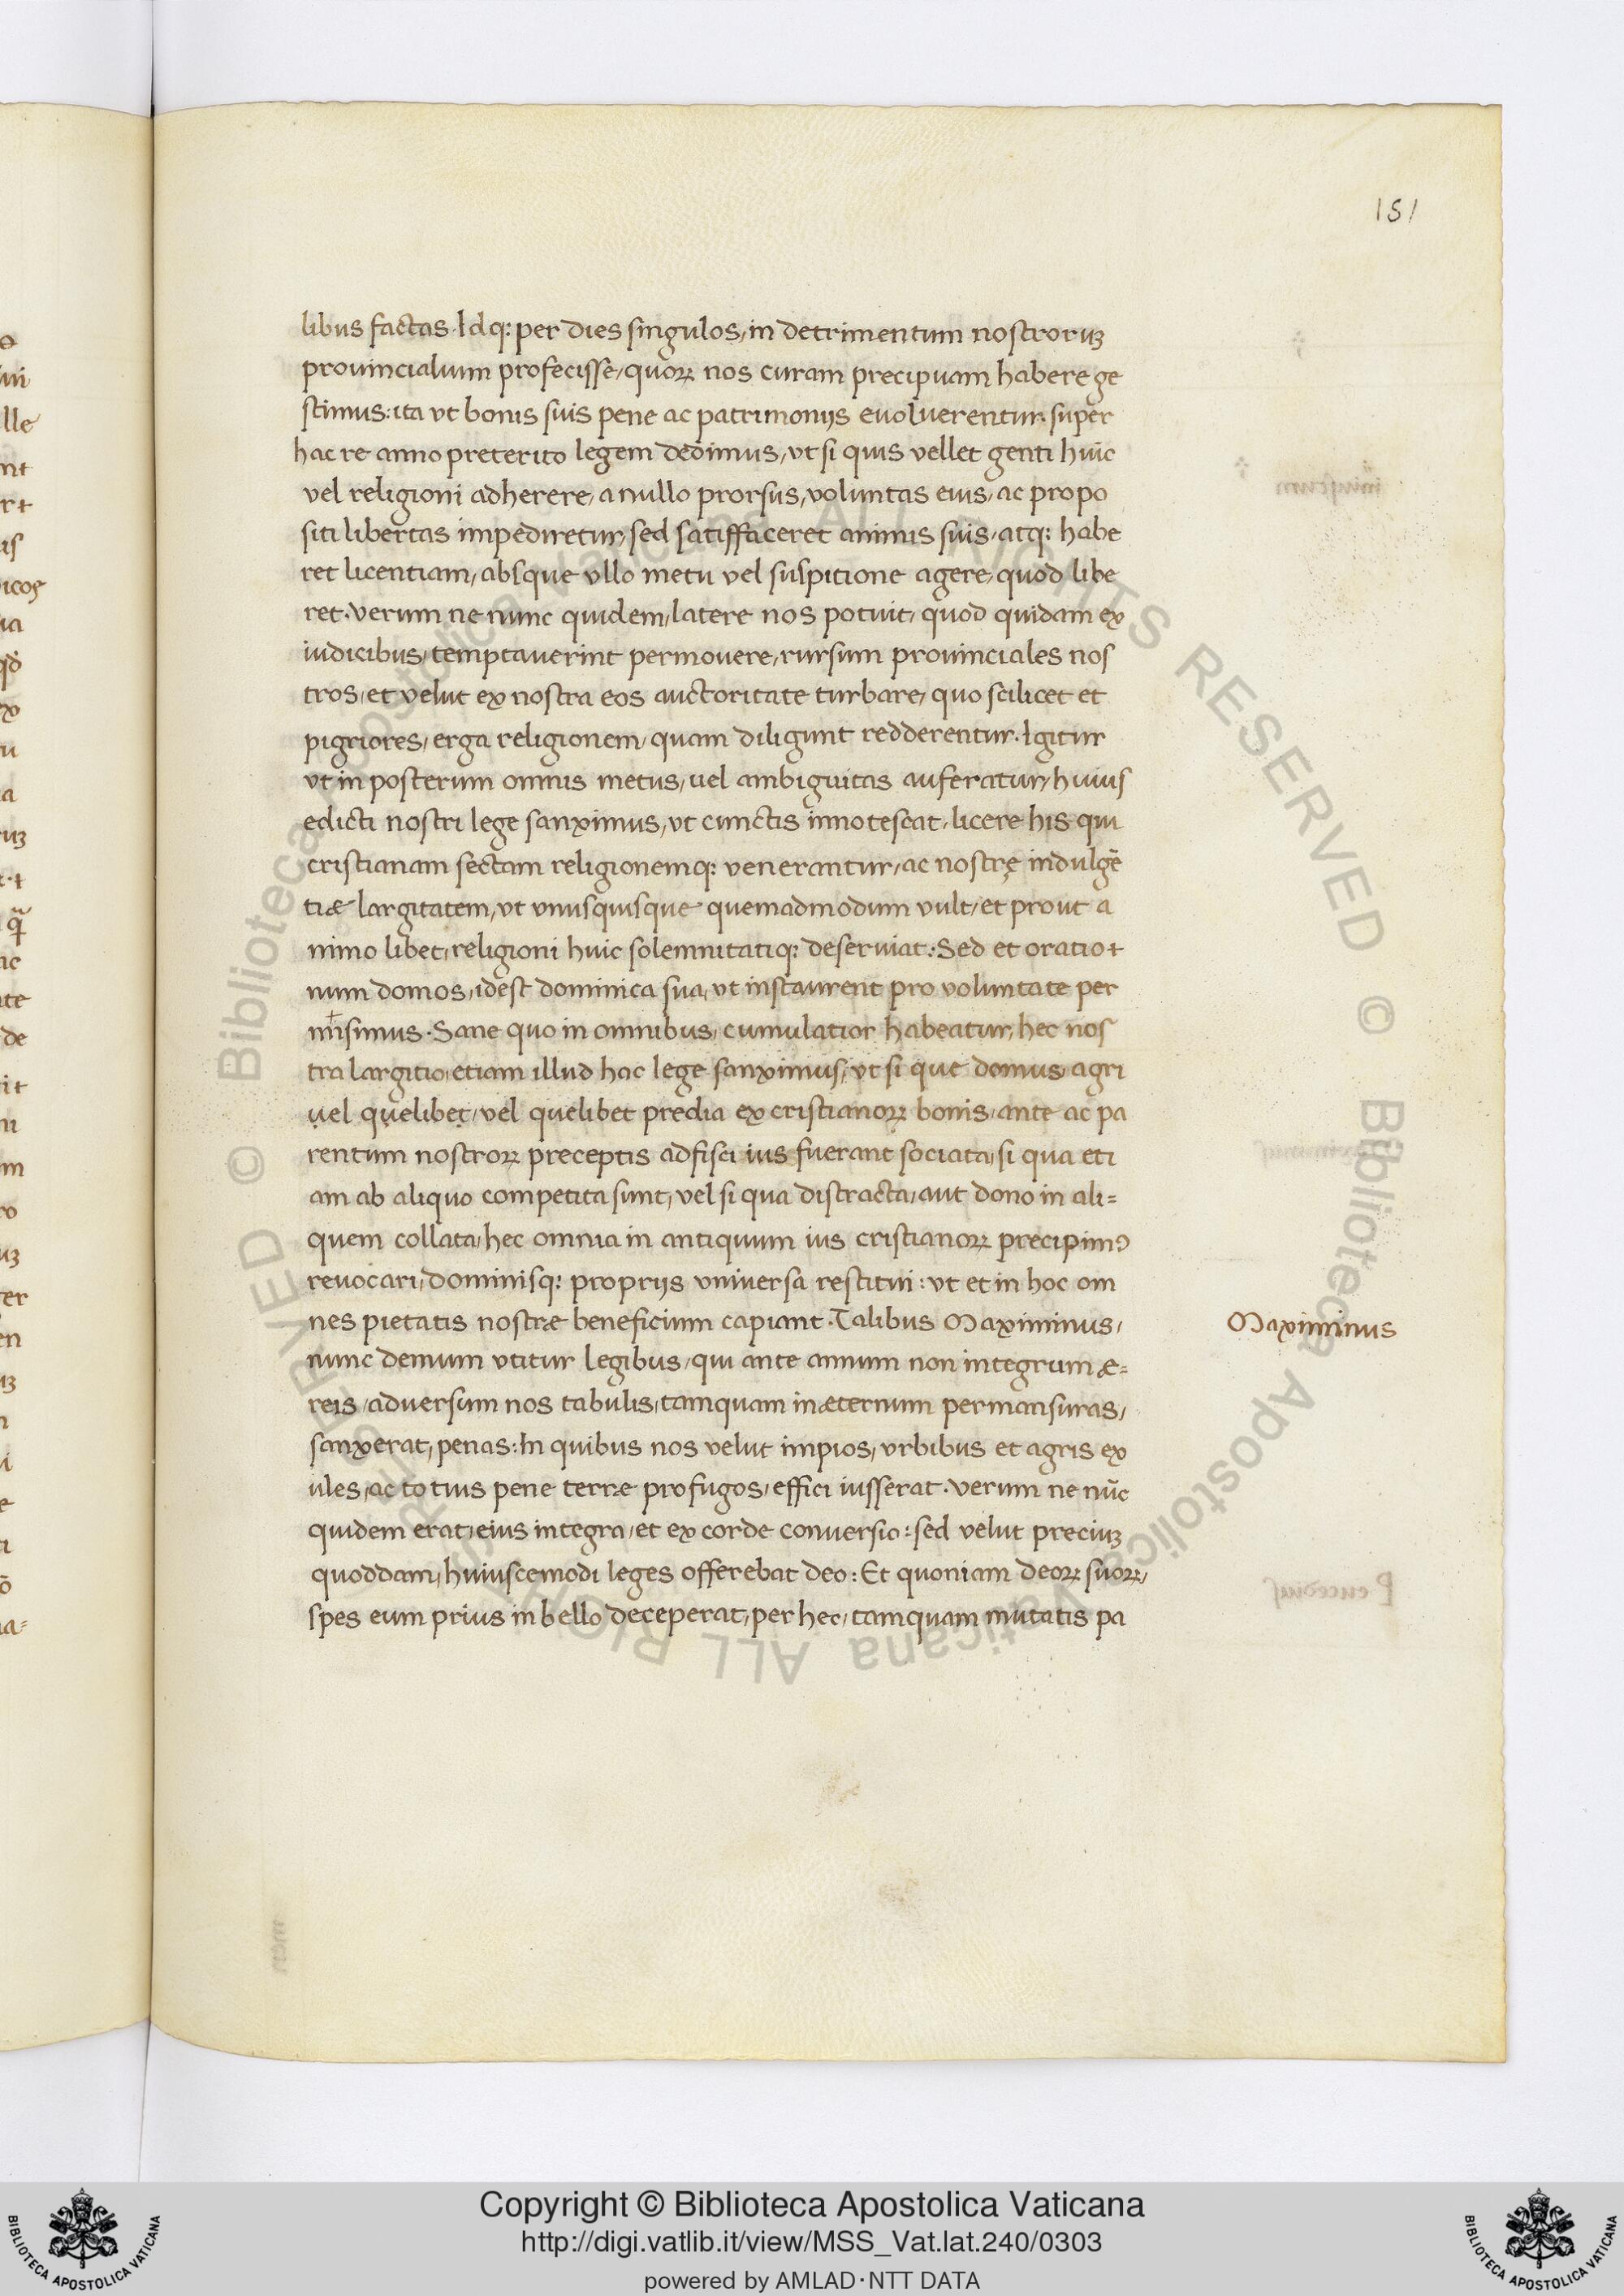 151
libus factas. Idq: per dies singulos, in detrimentum nostroruꝫ
prouincialium profecisse, quoꝝ nos curam precipuam habere ge
stimus: ita vt bonis suis pene ac patrimonijs euoluerentur. super
hac re anno preterito legem dedimus, vt si quis vellet genti huic
vel religioni adherere, a nullo prorsus, voluntas eius, ac propo
siti libertas impediretur, sed satisffaceret animis suis, atq: habe
ret licentiam, absque vllo metu vel suspitione agere, quod libe
ret. verum ne nunc quidem, latere nos potuit, quod quidam ex
iudicibus, temptauerint permouere, rursum prouinciales nos
tros, et velut ex nostra eos auctoritate turbare, quo scilicet et
pigriores, erga religionem, quam diligunt redderentur. Igitur
vt in posterum omnis metus, uel ambiguitas auferatur, huius
edicti nostri lege sanximus, vt cunctis innotescat, licere his qui
cristianam sectam religionemq: venerantur, ac nostrę indulgē
tiæ largitatem, vt vnusquisque quemadmodum vult, et prout a
nimo libet, religioni huic solemnitatiq: deseruiat. Sed et oratio
num domos, idest dominica sua, vt instaurent pro voluntate per
misimus. Sane quo in omnibus, cumulatior habeatur, hec nos
tra largitio, etiam illud hac lege sanximus, vt si que domus, agri
uel quelibet, vel quelibet predia ex cristianoꝝ bonis, ante ac pa
rentum nostroꝝ preceptis adfisci ius fuerant sociata, si qua eti
am ab aliquo competita sunt, vel si qua distracta, aut dono in ali=
quem collata, hec omnia in antiquum ius cristianoꝝ precipimꝰ
reuocari, dominisq: proprijs vniuersa restitui: vt et in hoc om
nes pietatis nostræ beneficium capiant. Talibus Maximinus,
Maximinus
nunc demum vtitur legibus, qui ante annum non integrum æ=
reis, aduersum nos tabulis, tamquam in æternum permansuras,
sanxerat, penas: In quibus nos velut impios, vrbibus et agris ex
ules, ac totius pene terræ profugos, effici iusserat. verum ne nūc
quidem erat, eius integra, et ex corde conuersio: sed velut preciuꝫ
quoddam, huiuscemodi leges offerebat deo: Et quoniam deoꝝ suoꝝ,
spes eum prius in bello deceperat, per hec, tamquam mutatis pa
Copyright © Biblioteca Apostolica Vaticana
http://digi.vatlib.it/view/MSS_Vat.lat.240/0303
powered by AMLAD·NTT DATA